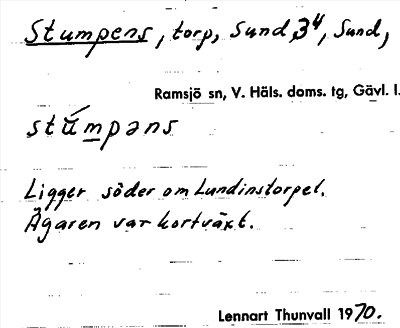 Stumpens, torp, Sund 3⁴, Sund,
Ramsjö sn, V. Häls. doms. tg, Gävl. l.
stú̱mpəns
Ligger söder om Lundinstorpet.
Ägaren var kortväxt.
Lennart Thunvall 1970.